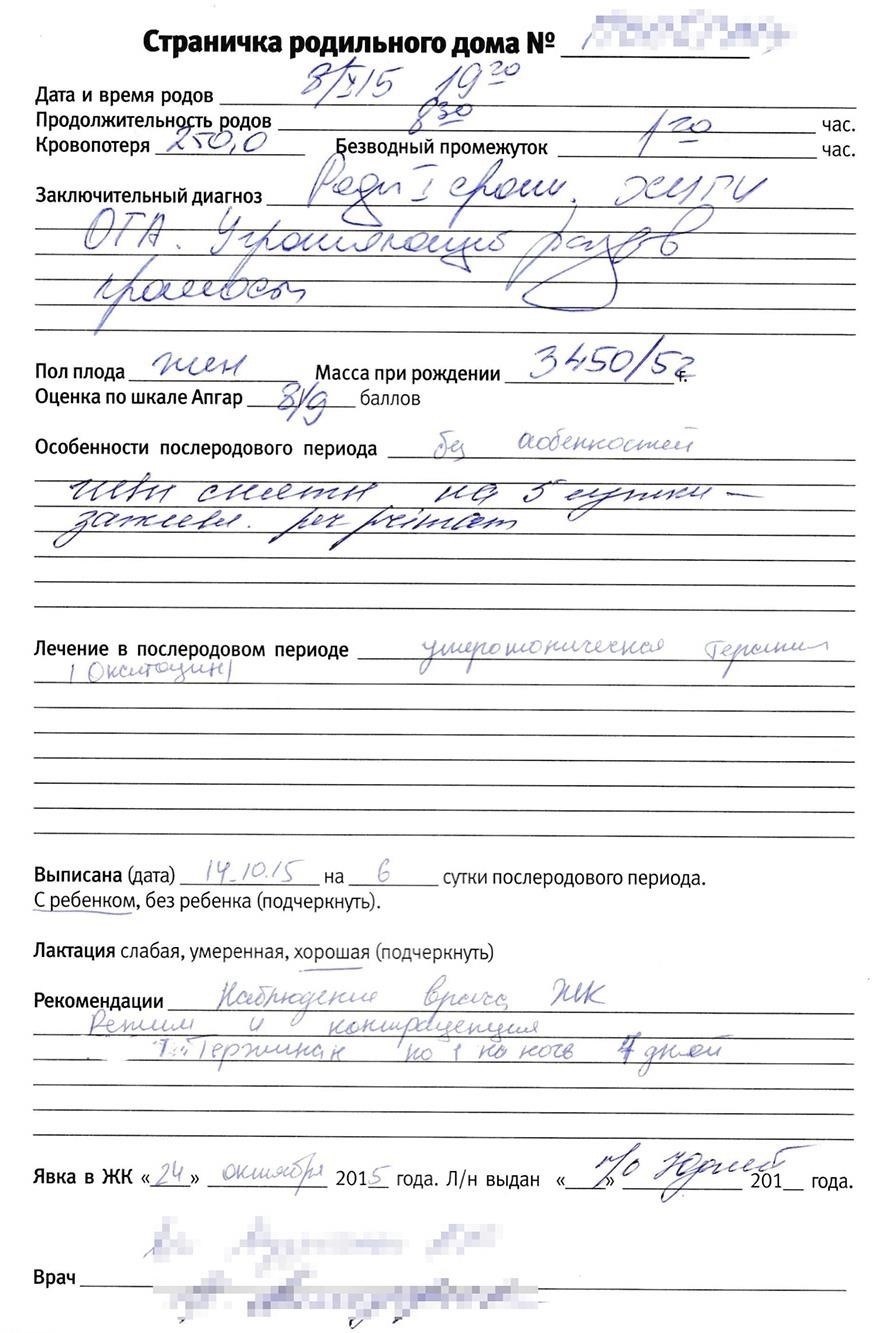 Страничка родильного дома №
Дата и время родов 8/X/15 19 20
Продолжительность родов 8 30 час.
Кровопотеря 250,0 Безводный промежуток 1 20 час.
Заключительный диагноз Роды I срочн. ХНГИ
ОГА. Угрожающий разрыв
промежн
Пол плода жен Масса при рождении 3450/52 г.
Оценка по шкале Апгар 8/9 баллов
Особенности послеродового периода без особенностей
швы сняты на 5 сутки –
зажив. per primam
Лечение в послеродовом периоде утеротоническая терапия
(Окситоцин)
Выписана (дата) 14.10.15 на 6 сутки послеродового периода.
С ребенком, без ребенка (подчеркнуть).
Лактация слабая, умеренная, хорошая (подчеркнуть)
Рекомендации Наблюдение врача ЖК
Режим и контрацепция
Тержинан по 1 на ночь 7 дней
Явка в ЖК «24» октября 2015 года. Л/н выдан « » 201 года.
Врач